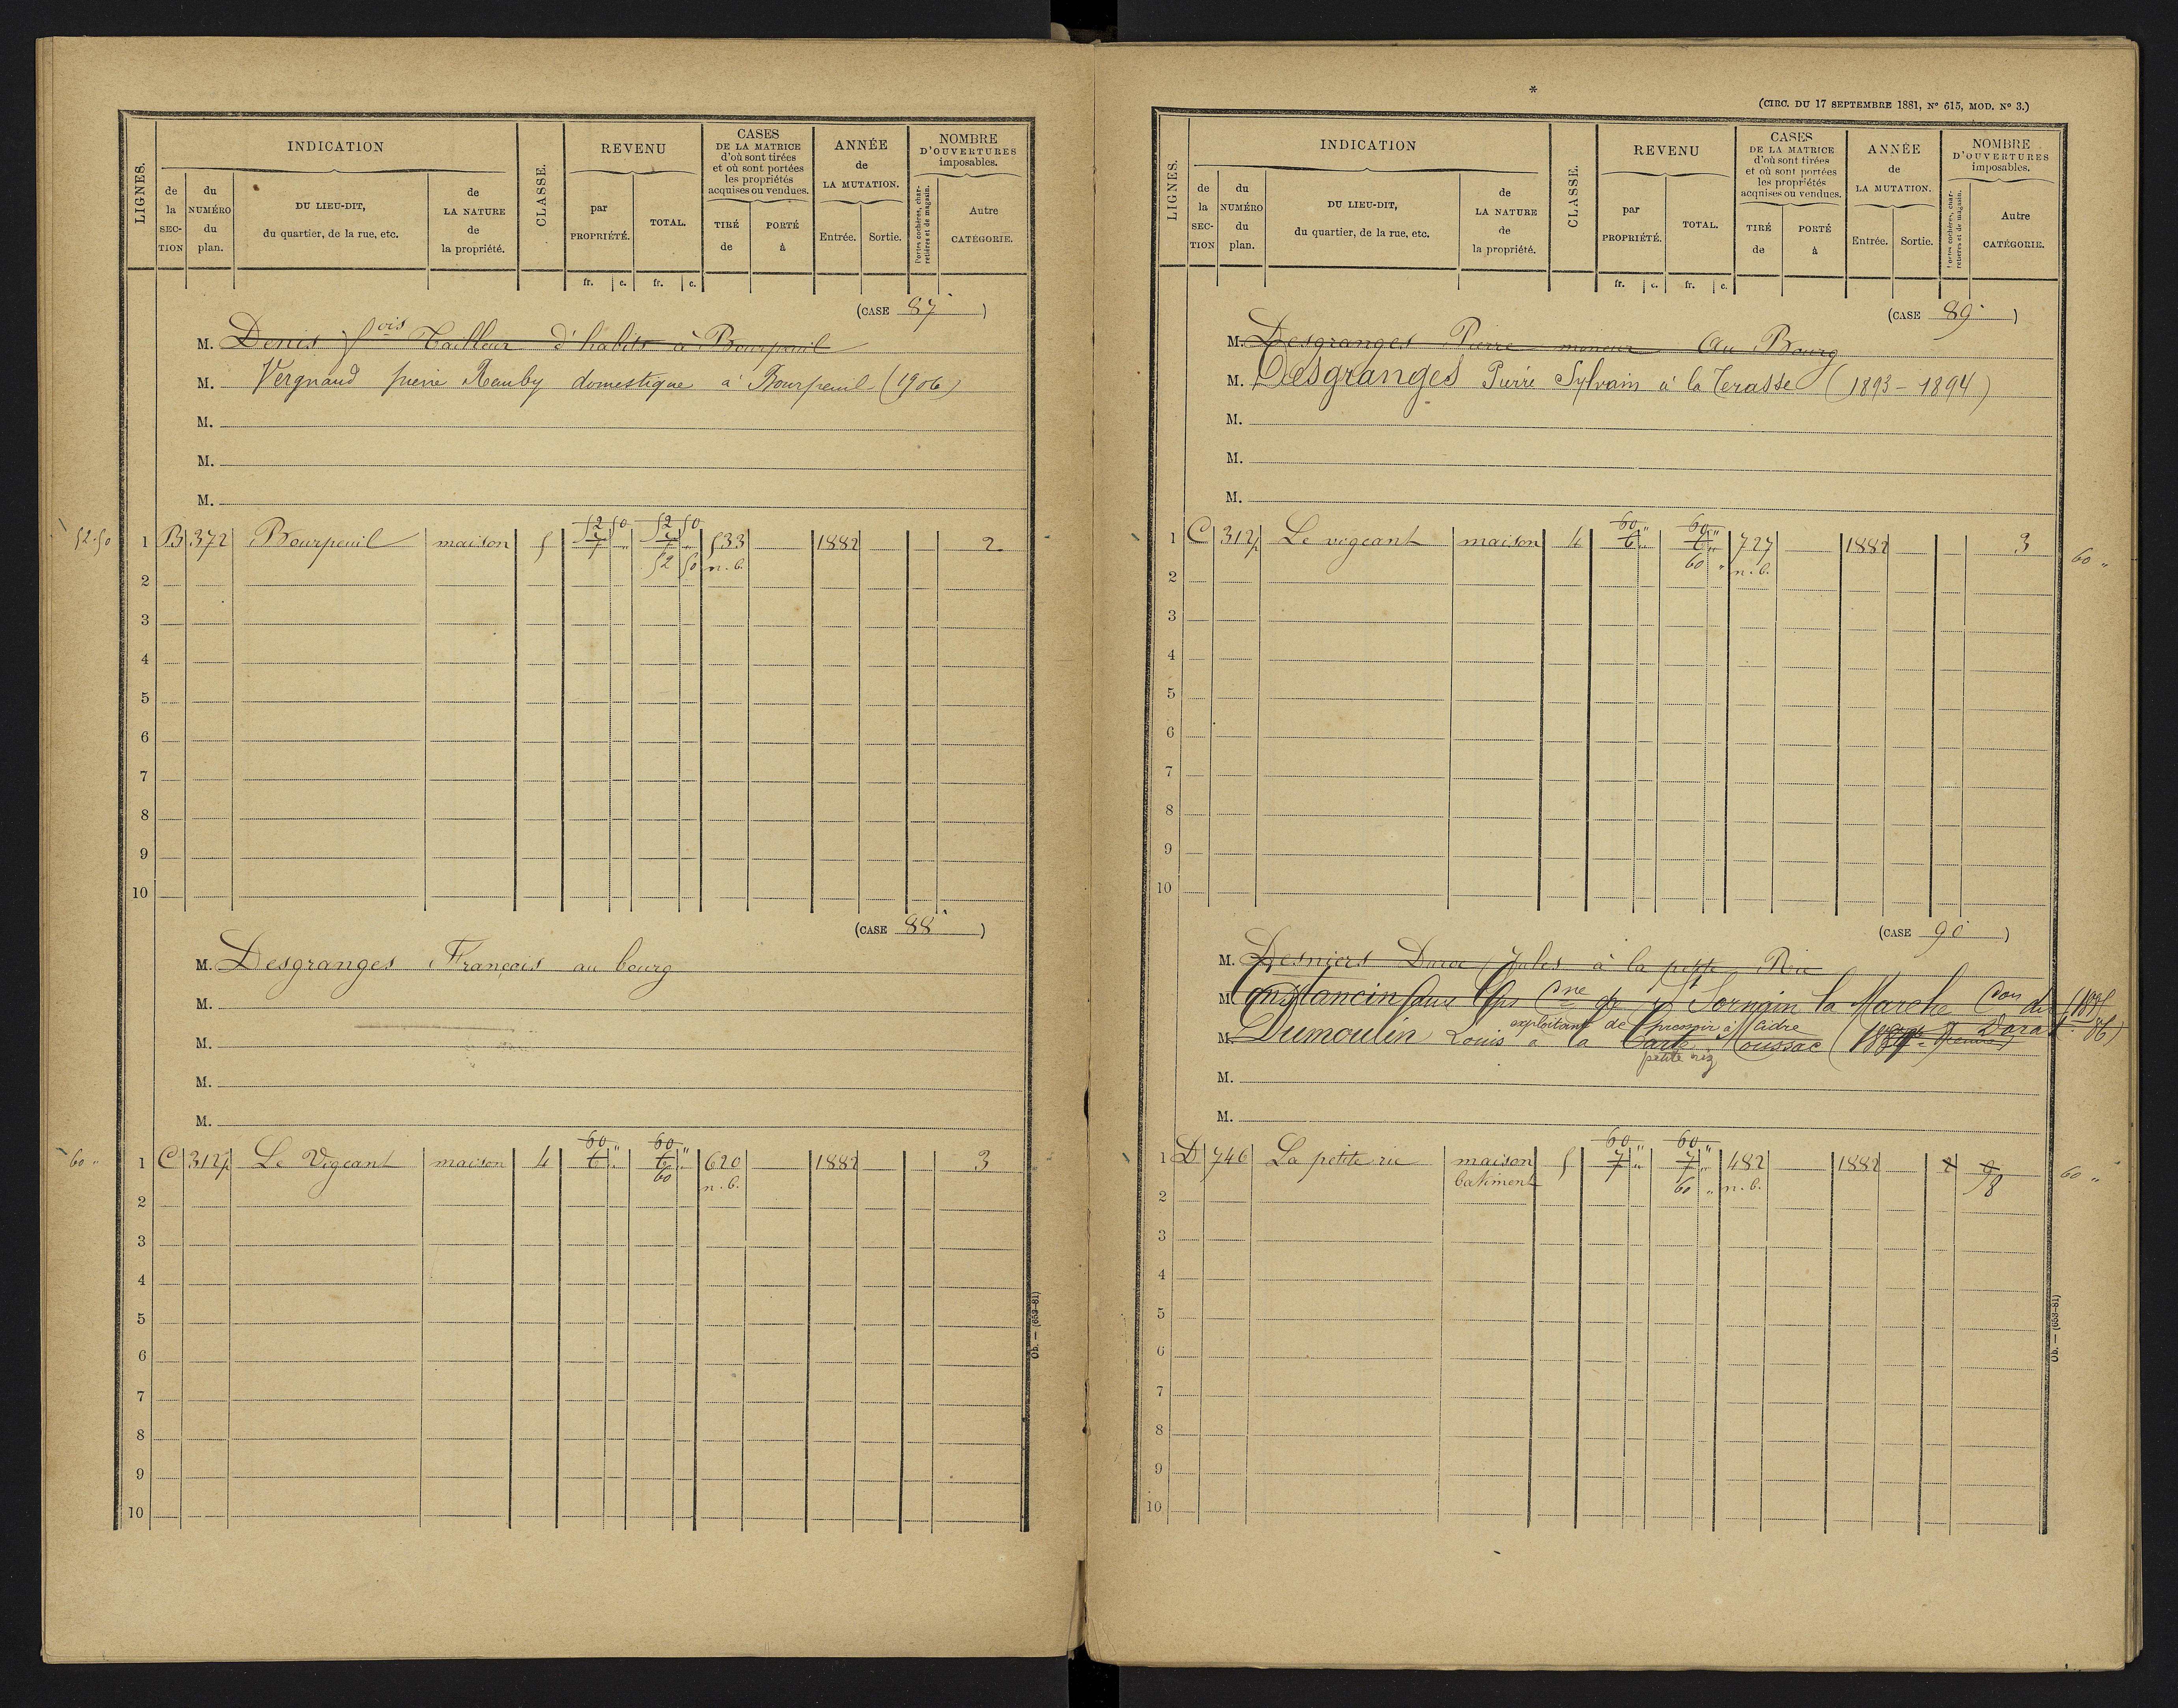 LIGNES.
INDICATION
de la SEC-TION
du NUMÉRO du plan.
DU LIEU-DIT, du quartier, de la rue, etc.
de LA NATURE de la propriété.
CLASSE.
REVENU
par PROPRIÉTÉ.
TOTAL.
CASES DE LA MATRICE d'où sont tirées et où sont portées les propriétés acquises ou vendues.
TIRÉ de
PORTÉ à
ANNÉE de LA MUTATION.
Entrée.
Sortie.
NOMBRE D'OUVERTURES imposables.
Portes cochères, charretières et de magasin.
Autre CATÉGORIE.
fr. c. fr. c.
(CASE 87)
M. Denis fois Tailleur d'habits à Bourpeuil
M. Vergnaud pierre Rauby domestique à Bourpeuil (1906)
M.
M.
M.
52.50 1 B 372 Bourpeuil maison 5 52 50 52 50 533 1882 2
7 7
2 52 50 n.b.
3
4
5
6
7
8
9
10
(CASE 88)
M. Desgranges François au bourg
M.
M.
M.
M.
60 " 1 C 312p Le Vigeant maison 4 60 " 60 " 620 1882 3
6 " 6 "
2 60 n.b.
3
4
5
6
7
8
9
10
Ob. — (653-81)
*
(CIRC. DU 17 SEPTEMBRE 1881, No 615, MOD. No 3.)
LIGNES.
INDICATION
de la SEC-TION
du NUMÉRO du plan.
DU LIEU-DIT, du quartier, de la rue, etc.
de LA NATURE de la propriété.
CLASSE.
REVENU
par PROPRIÉTÉ.
TOTAL.
CASES DE LA MATRICE d'où sont tirées et où sont portées les propriétés acquises ou vendues.
TIRÉ de
PORTÉ à
ANNÉE de LA MUTATION.
Entrée.
Sortie.
NOMBRE D'OUVERTURES imposables.
Portes cochères, charretières et de magasin.
Autre CATÉGORIE.
fr. c. fr. c.
(CASE 89)
M. Desgranges Pierre meneur Au Bourg
M. Desgranges Pierre Sylvain à la Terasse (1893-1894)
M.
M.
M.
1 C 312p Le vigeant maison 4 60 " 60 " 727 1882 3 60 "
6 " 6 "
2 60 " n.b.
3
4
5
6
7
8
9
10
(CASE 90)
M. Desniers Jules à la petite Rie
M. Constancin St Sornain la Marche Con du Dorat
exploitant de pressoir à cidre
M. Dumoulin Louis à la Moussac
petite rie
M.
M.
1 D 746 La petite rie maison 5 60 " 60 " 482 1882 2 9 60 "
7 " 7 "
batiment 60 " n.b. 8
2
3
4
5
6
7
8
9
10
Ob. — (653-81)